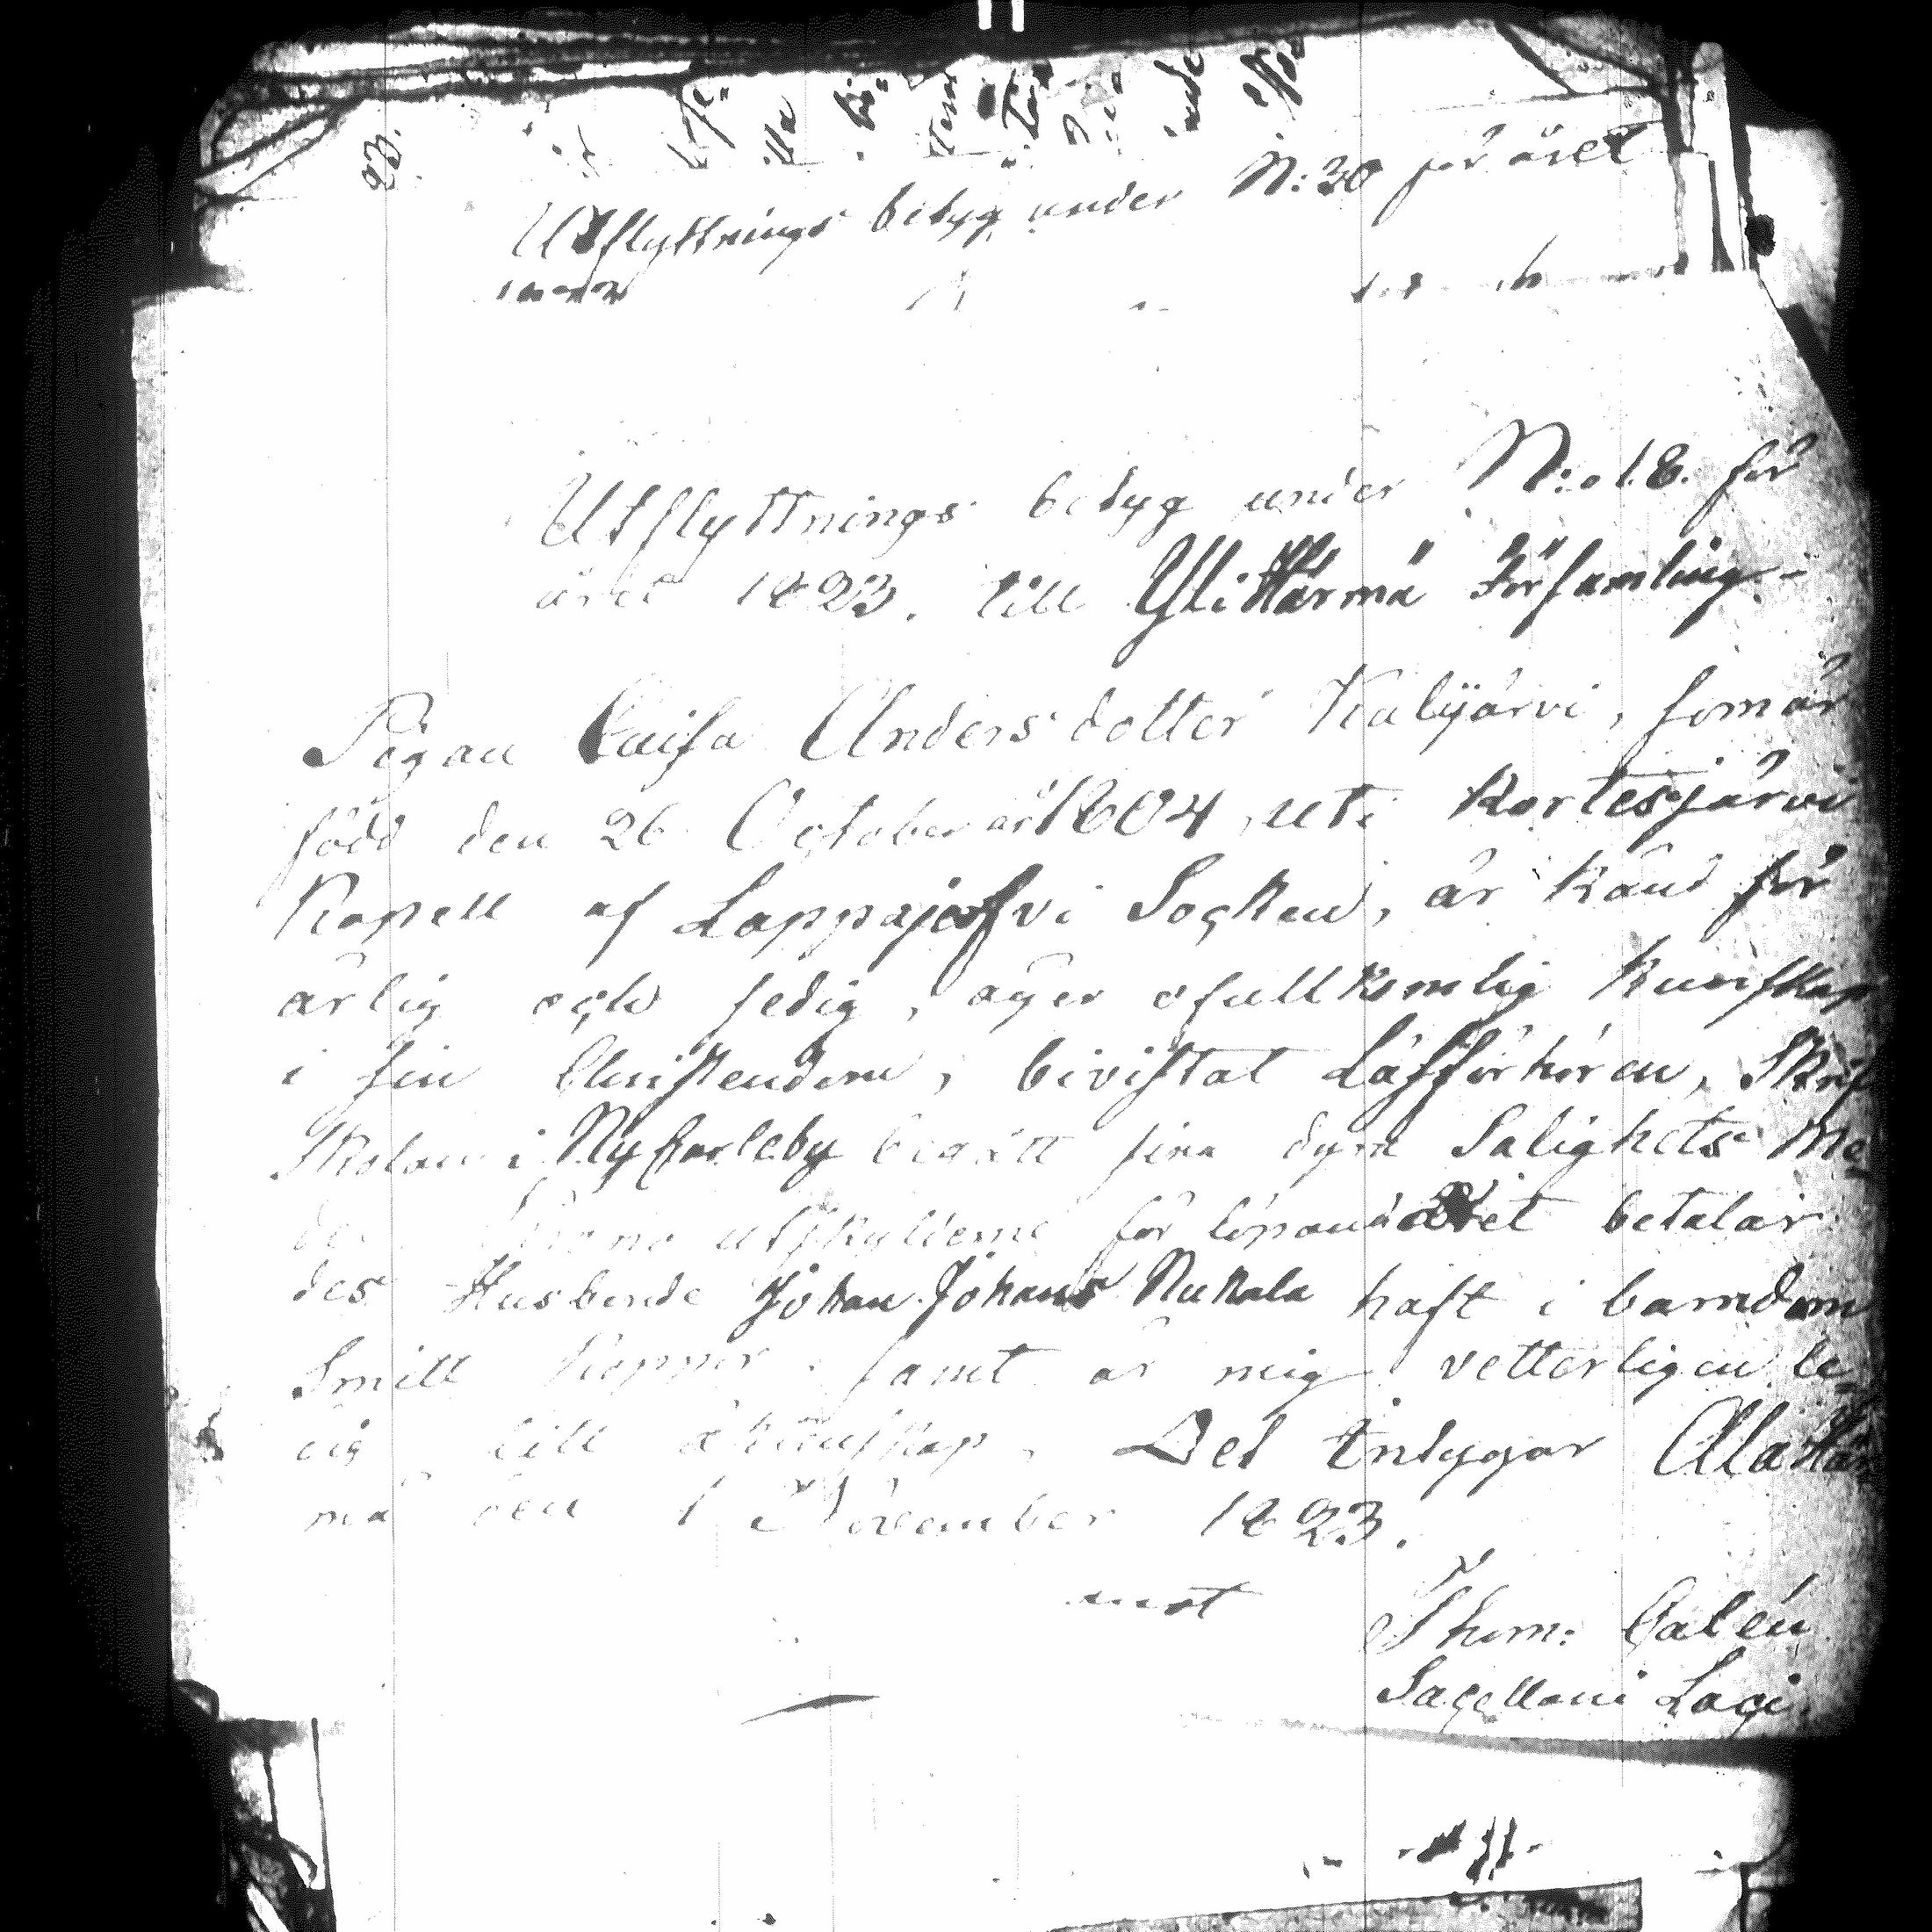 Utflyttnings betyg under N:30 för året
Utflyttnings betyg under N:o 18. för
året 1823. till YliHärmä Församling
Pigan Caisa Andersdotter Kalijärvi, som är
född den 26 October år 1804, uti Kortesjärvi
Kapell af Lappajärvi Socken, är känd för
ärlig och sedig, äger ofullkomlig kunskap
i sin Christendom, bivistat Läsförhören, Skrift
Skolan i Nykarleby begått sina dyra Salighets Me,
utskylderne för löpande året betalar
des Husbonde Johan Johans Nukala haft i barndom
Smitt Koppor, samt är mig vetterligen le,
dig till äktenskap. Det intygar AlaHär
mä den 1 November 1823.
Thom: Calén
Sacellani Loci.